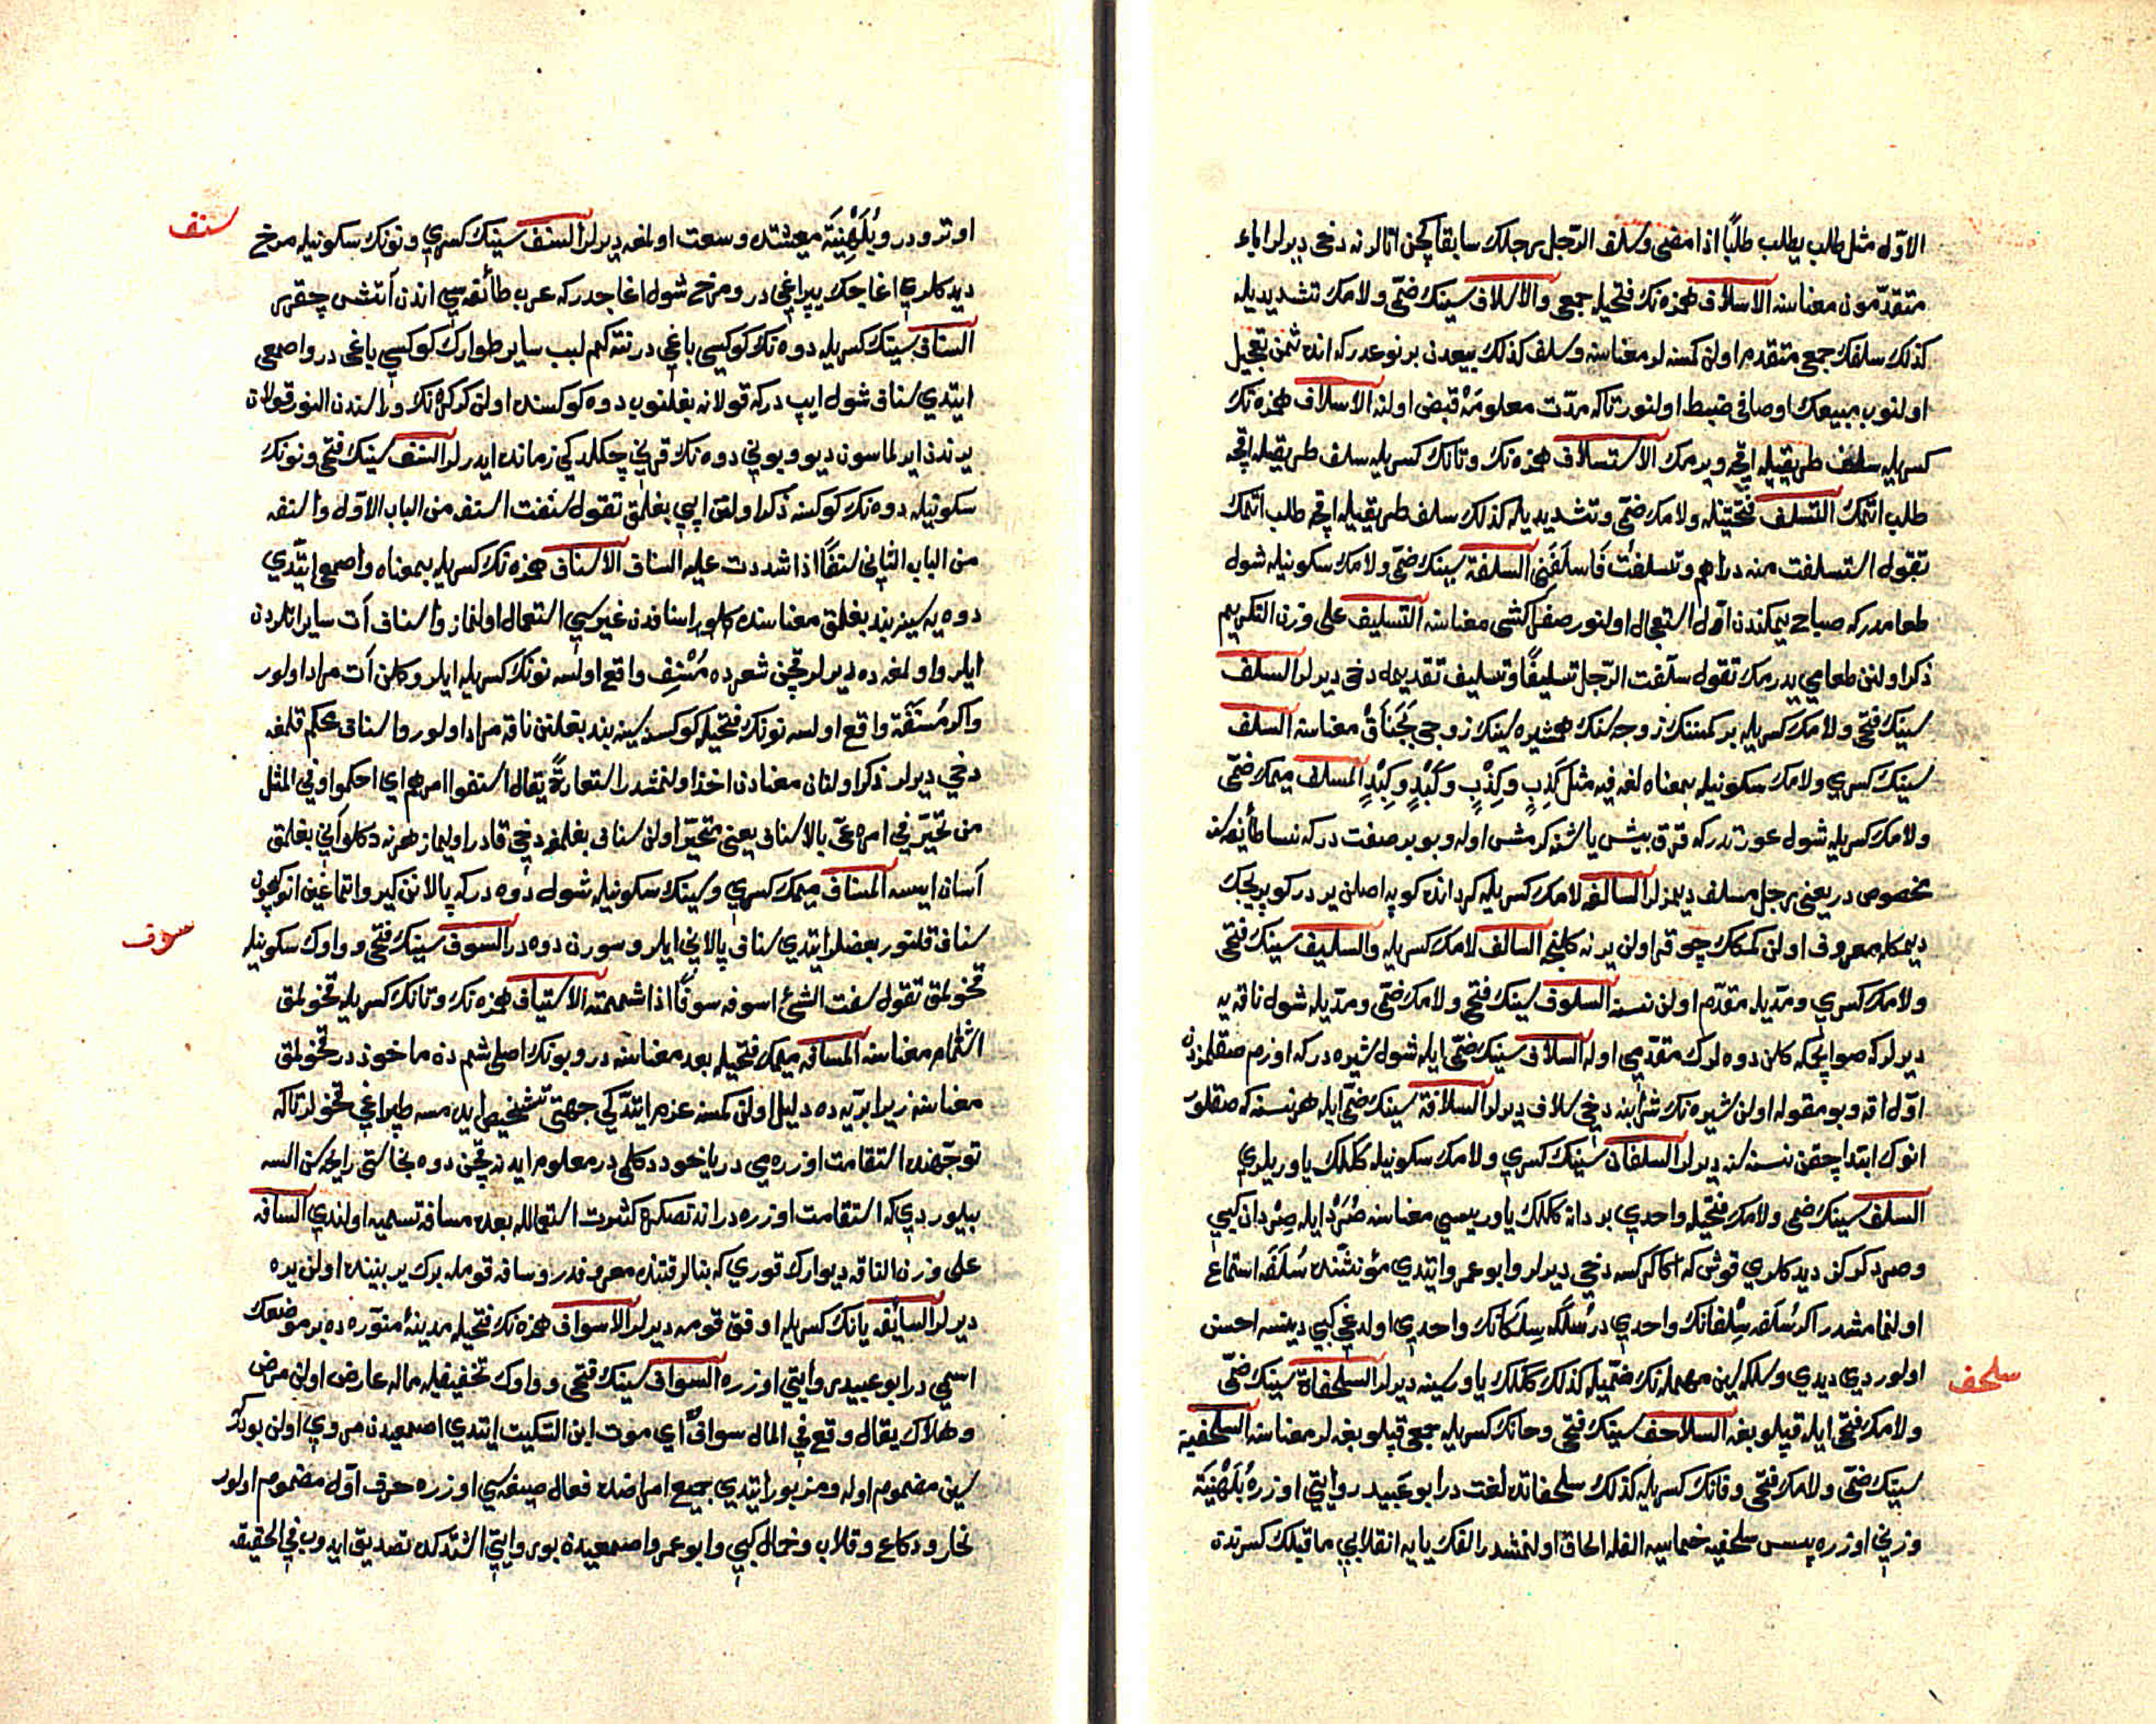 الاوّل مثل طلب يطلب طلبًا اذا مضى وسلف الرّجل برجلك سابقا كچن اتالرنه دخى ديرلر اباء
متقدّمون معناسنه الاسلاف همزه نك فتحيله جمعى والاسلاف سينك ضمّى ولامك تشديديله
كذلك سلفك جمعى متقدم اولن كمسنه لر معناسنه وسلف كذلك بيعدن بر نوعدر كه انده ثمن تعجيل
اولنوب مبيعك اوصافى ضبط اولنور تاكه مدّت معلومه‌ده قبض اولنه الاسلاف همزه نك
كسريله سلف طريقيله اقچه ويرمك الاستسلاف همزه نك وتانك كسريله سلف طريقيله اقچه
طلب اتمك التسلف فتحتينله ولامك ضمّى وتشديديله كذلك سلف طريقييله اقچه طلب اتمك
تقول استسلفت منه دراهم وتسلفت فَاَسلَفَنِى السلفة سينك ضمّى ولامك سكونيله شول
طعامدر كه صباح يمكندن اوّل استعجال اولنور صفرا كشى معناسنه التسليف على وزن التكريم
ذكر اولنن طعامى يدرمك تقول سلّفت الرّجل تسليفًا وتسليف تقديمه دخى ديرلر السلف
سينك فتحى ولامك كسريله بر كمسنك زوجه سنك همشيره سينك زوجى بَجَنَاق معناسنه السلف
سينك كسرى ولامك سكونيله بمعناه لغه فيه مثل كَذِبٍ وكِذْبٍ وكَبِدٍ وكِبْدٍ المسلف ميمك ضمّى
ولامك كسريله شول عورتدر كه قرق بيش ياشنه كرمش اوله وبو بر صفت در كه نسا طائفه‌سنه
مخصوص در يعنى رجل مسلف ديمزلر السالفه لامك كسريله كردانده كوپه اصلن يردر كوپريجك
ديمكله معروف اولن كمكك چوقرى اولن يرنه كلنجه السالف لامك كسريله والسليف سينك فتحى
ولامك كسرى ومدّيله مقدّم اولن نسنه السلوف سينك فتحى ولامك ضمّى ومدّيله شول ناقه يه
ديرلر كه صوايچمكه كلن دوه لرك متقدّمى اوله السلاف سينك ضمّى ايله شول شيره در كه اوزم صقلمزدن
اوّل اقه وبو مقوله اولن شيره نك شرابنه دخى سلاف ديرلر السلافة سينك ضمّى ايله هر نسنه كه صقلور
انوك ابتدا چقن نسنه سنه ديرلر السلفان سينك كسرى ولامك سكونيله ككلك ياوريلرى
السلف سينك ضمى ولامك فتحيله واحدى بر دانه ككلك ياوريسى معناسنه صُرَدْ ايله صِرْدان كبى
وصرد كوكن ديدكلرى قوش كه اكا كركسه دخى ديرلر وابو عمرو ايتدى مؤنثنده سُلَفَه استماع
اولنمامشدر اكر سُلَفه سِلْفانك واحدى در سُلَكَه سِلَكانك واحدى اولدغى كبى دينسه احسن
اولوردى ديدى وسلكه سين مهمله نك ضمّيله كذلك ككلك ياوريسينه ديرلر السلحفاة سينك ضمّى
ولامك فتحى ايله قپلوبغه السلاحف سينك فتحى وحانك كسريله جمعى قپلوبغه لر معناسنه السلحفية
سينك ضمّى ولامك فتحى وفانك كسريله كذلك سلحفاتده لغت در ابو عبيد روايتى اوزره بُلَهْنِيَة
وزنى اوزره پسس سلحفيه خماسيه الفله الحاق اولنمشدر الفك يايه انقلابى ماقبلك كسرتدن
سلحف
اوتر ودر وبُلَهْنِيَة معيشتده وسعت اولمغه ديرلر السنف سينك كسرى ونونك سكونيله مرخ
ديدكلرى اغاجك يپراغى در ومرخ شول اغاجدر كه عرب طائفه‌سى اندن آتش چقرر
السناف سينك كسريله دوه نك كوكسى باغى در نته كم لبب ساير طوارك كوكسى ياغى در واصمعى
ايتدى سناف شول ايپ در كه قولانه بغلنوب دوه كوكسنده اولن كركره نك وراسندن النور قولان
يرندن ايرلماسون ديو وبونى دوه نك قرنى چكلدكى زمانده ايدرلر السنف سينك فتحى ونونك
سكونيله دوه نك كوكسنه ذكر اولنن ايپى بغلمق تقول سنفت استفه من الباب الاوّل واسنفه
من الباب الثانى سنفًا اذا شددت عليه السناف الاسناف همزه نك كسريله بمعناه واصمعى ايتدى
دوه يه سينه بند بغلمق معناسنده كلور اسنافدن غيرسى استعمال اولنماز واسناف آت سايراتلردن
ايلرو اولمغه ده ديرلر قچن شعرده مُسْنِف واقع اولسه نونك كسريله ايلرو كلن آت مراد اولور
واكر مُسْنَفَة واقع اولسه نونك فتحيله كوكسنه سينه بند بغلنن ناقه مراد اولور واسناف محكم قلمغه
دخى ديرلر ذكر اولنان معنادن اخذ اولنمشدر استعارةً يقال اسنفوا امرهم اى احكموا وفى المثل
من تحيّر فى امره عىّ بالاسناف يعنى متحيّر اولن سناف بغلمغه دخى قادر اوليماز هرنه دكلو آنى بغلمق
آسان ايسه المسناف ميمك كسرى وسينك سكونيله شول دوه در كه پالانن كيرو اتماغين انوكچون
سناف قلنور بعضلر ايتدى سناف پالانى ايلرو سورن دوه در السوف سينك فتحى وواوك سكونيله
قخولمق تقول سفت الشئ اسوفه سوفًا اذا شممته الاستياف همزه نك وتانك كسريله قخولمق
اشتمام معناسنه المسافه ميمك فتحيله بعد معناسنه در وبونك اصلى شم دن ماخوذ در قخولمق
معناسنه زيرا برّيه ده دليل اولن كمسنه عزم ايتدكى جهتى تشخيص ايدمسه طپراغى قخولر تاكه
توجّهنده استقامت اوزره مى در ياخود دكلى در معلوم ايدنه قچن دوه نجاستى رايحه سن السه
بيلوردى كه استقامت اوزره در انده تصكره كثرت استعماله بعده مسافه تسميه اولندى السافه
على وزن الناقه ديوارك قورى كه بنالر قتنده معروفدر وسافه قومله يرك بربيننده اولن يره
ديرلر السايفه يانك كسريله اوفق قومه ديرلر الاسواف همزه نك فتحيله مدينۀ منوّره ده بر موضعك
اسمى در ابو عبيد روايتى اوزره السواف سينك فتحى وواوك تخفيفيله ماله عارض اولن مرض
وهلاك يقال وقع فى المال سوافٌ اى موت ابن السّكيت ايتدى اصمعيدن مروى اولن بودر كه
سين مضموم اوله ومزبور ايتدى جميع امراضده فعال صيغه‌سى اوزره حرف اوّل مضموم اولور
نحاز ودكاع وقلاب وخمال كبى وابو عمرو اصمعيدن بو روايتى استدكده تصديق ايدوب فى الحقيقه
سنف
سوف